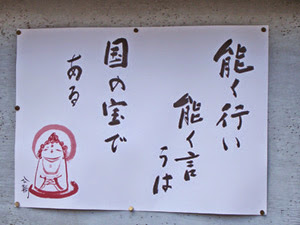 能く行い
能く言
うは
国の宝で
ある